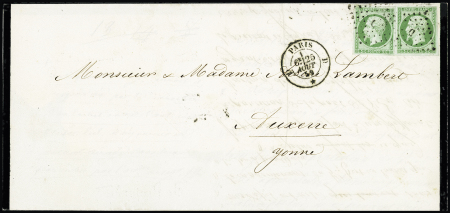 PARIS
D
25
AOUT
Monsieur & Madame A Lambert
Auxerre
Yonne